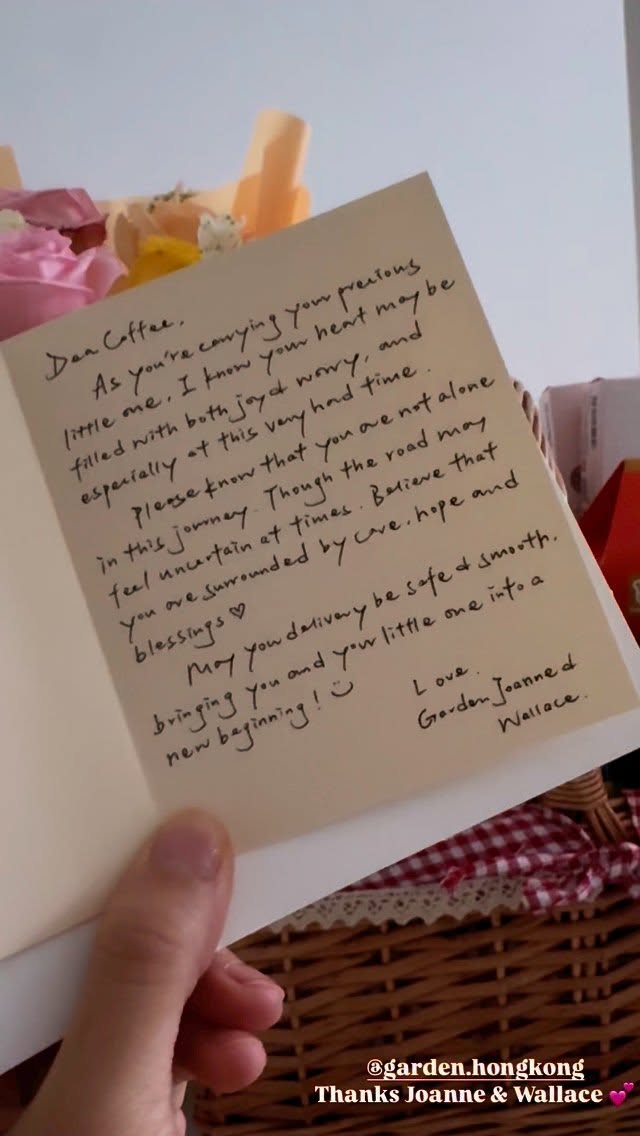 Dear Coffee,
As you're carrying your precious
little one, I know your heart may be
filled with both joy & worry, and
especially at this very hard time.
please know that you are not alone
in this journey. Though the road may
feel uncertain at times. Believe that
you are surrounded by care, hope and
blessings ♡
May you delivery be safe & smooth,
bringing you and your little one into a
new beginning! :)
Love,
Garden Joanne &
Wallace.
@garden.hongkong
Thanks Joanne & Wallace 💕